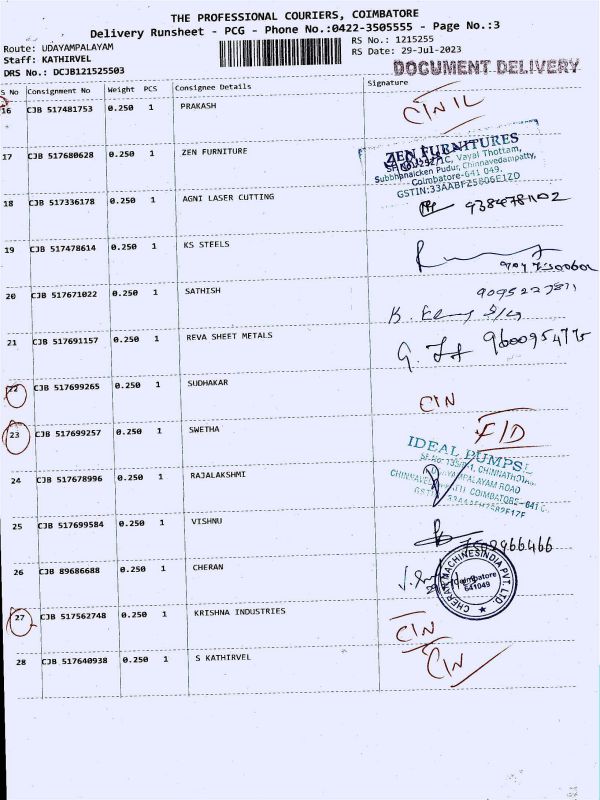 THE PROFESSIONAL COURIERS, COIMBATORE
Delivery Runsheet - PCG - Phone No.:0422-3505555 - Page No.:3
Route: UDAYAMPALAYAM RS No.: 1215255
Staff: KATHIRVEL RS Date: 29-Jul-2023
DRS No.: DCJB121525503 DOCUMENT DELIVERY
S No Consignment No Weight PCS Consignee Details Signature
16 CJB 517481753 0.250 1 PRAKASH
17 CJB 517680628 0.250 1 ZEN FURNITURE
ZEN FURNITURES
Vayal Thottam,
Subbhanaicken Pudur, Chinnavedampatty,
Coimbatore-641 049.
18 CJB 517336178 0.250 1 AGNI LASER CUTTING
19 CJB 517478614 0.250 1 KS STEELS
20 CJB 517671022 0.250 1 SATHISH
21 CJB 517691157 0.250 1 REVA SHEET METALS
22 CJB 517699265 0.250 1 SUDHAKAR
CIN
23 CJB 517699257 0.250 1 SWETHA
F/D
IDEAL PUMPS
24 CJB 517678996 0.250 1 RAJALAKSHMI
COIMBATORE - 641
25 CJB 517699584 0.250 1 VISHNU
26 CJB 89686688 0.250 1 CHERAN
CHERAN MACHINES INDIA PVT. LTD
Coimbatore
641049
27 CJB 517562748 0.250 1 KRISHNA INDUSTRIES
CIN
28 CJB 517640938 0.250 1 S KATHIRVEL
CIN